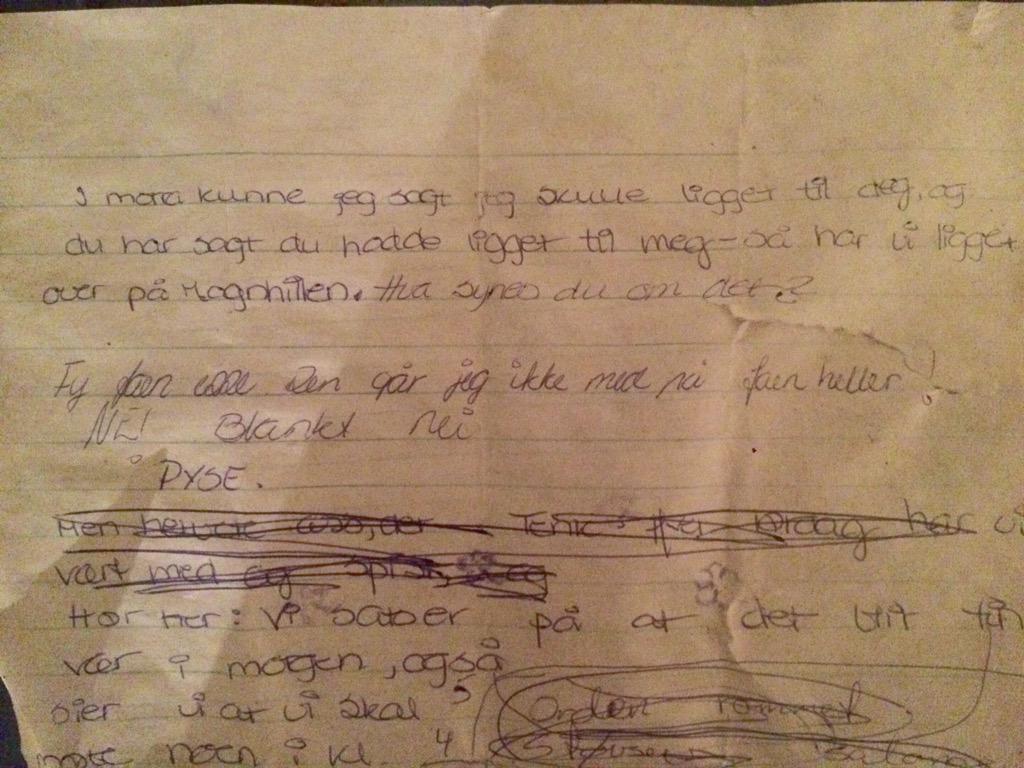 I mora kunne jeg sagt jeg skulle ligget til deg, og
du har sagt du hadde ligget til meg - så har vi ligget
over på Hognhillen. Hva synes du om det?
Fy faen asse. Den går jeg ikke med på faen heller!
NEI Blankt nei
PYSE.
Men asso, der Tenk har vi
vært med og
Hør her: Vi satser på at det blir fint
vær i morgen, også
sier vi at vi skal Ordan rommet
møte noen i kl 4